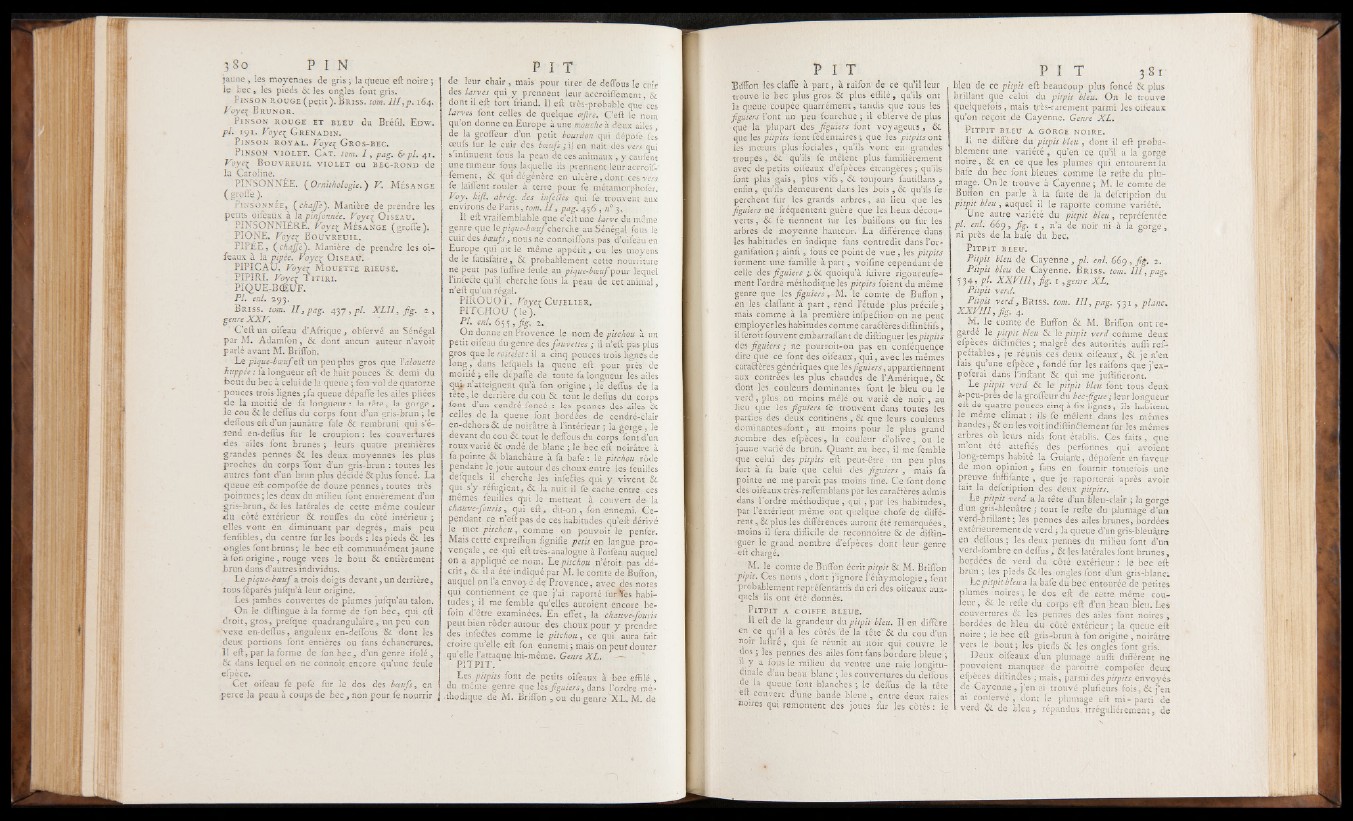 380 P I N
jaune, les moyennes de gris ; la queue eſt noire ;
le bec, les pieds & les ongles ſont gris.
PINSON ROUGE (petit). BRISS. tom. III, p. 164.
Voyez BRUNOR.
PINSON ROUGE ET BLEU du Bréſil. EDW.
pl. 191. Voyez GRENADIN.
PINSON ROYAL. Voyez GROS-BEC.
PINSON VIOLET. CAT. tom. I, pag. & pl. 41.
Voyez BOUVREUIL VIOLET ou BEC-ROND de
la Caroline.
PINSONNÉE. (Ornithologie.) V. MÉSANGE
(groſſe).
PINSONNÉE, (chaſſe). Manière de prendre les
petits oiſeaux à la pinſonnée. Voyez OISEAU.
PINSONNIÈRE. Voyez MÉSANGE (groſſe).
PIONE. Voyez BOUVREUIL.
PIPÉE, (chaſſe). Manière de prendre les oi-
ſeaux à la pipée. Voyez OISEAU.
PIPICAU. Voyez MOUETTE RIEUSE.
PIPIRI. Voyez TITIRI.
PIQUE-BŒUF.
Pl. enl. 293.
BRISS. tom. II, pag. 437, pl. XLII, fig. 2,
genre XXV.
C'eſt un oiſeau d'Afrique, obſervé au Sénégal
par M. Adamſon, & dont aucun auteur n'avoit
parlé avant M. Briſſon.
Le pique-bœuf eſt un peu plus gros que l'alouette
huppée : ſa longueur eſt de huit pouces & demi du
bout du bec à celui de la queue ; ſon vol de quatorze
pouces trois lignes ; ſa queue dépaſſe les ailes pliées
de la moitié de ſa longueur : la tête, la gorge,
le cou & le deſſus du corps ſont d'un gris-brun ; le
deſſous eſt d'un jaunâtre ſale & rembruni qui s'é-
tend en-deſſus ſur le croupion : les couvertures
des ailes ſont brunes ; leurs quatre premières
grandes pennes & les deux moyennes les plus
proches du corps ſont d'un gris-brun : toutes les
autres ſont d'un brun plus décidé & plus foncé. La
queue eſt compoſée de douze pennes, toutes très
pointues ; les deux du milieu ſont entièrement d'un
gris-brun, & les latérales de cette même couleur
du côté extérieur & rouſſes du côté intérieur ;
elles vont en diminuant par degrés, mais peu
ſenſibles, du centre ſur les bords : les pieds & les
ongles ſont bruns ; le bec eſt communément jaune
à ſon origine, rouge vers le bout & entièrement
brun dans d'autres individus.
Le pique-bœuf a trois doigts devant, un derrière,
tous ſéparés juſqu'à leur origine.
Les jambes couvertes de plumes juſqu'au talon.
On le diſtingue à la forme de ſon bec, qui eſt
droit, gros, preſque quadrangulaire, un peu con-
vexe en-deſſus, anguleux en-deſſous & dont les
deux portions ſont entières ou ſans échancrures.
Il eſt, par la forme de ſon bec, d'un genre iſolé,
& dans lequel on ne connoît encore qu'une ſeule
eſpèce.
Cet oiſeau ſe poſe ſur le dos des bœufs, en
perce la peau à coups de bec, non pour ſe nourrir
P I T
de leur chair, mais pour tirer de deſſous le cuir
des larves qui y prennent leur accroiſſement, &
dont il eſt fort friand. Il eſt très-probable que ces
larves ſont celles de quelque eſtre. C'eſt le nom
qu'on donne en Europe à une mouche à deux ailes,
de la groſſeur d'un petit bourdon qui dépoſe ſes
œufs ſur le cuir des bœufs ; il en naît des vers qui
s'inſinuent ſous la peau de ces animaux, y cauſent
une tumeur ſous laquelle ils prennent leur accroiſ-
ſement, & qui dégénère en ulcère, dont ces vers
ſe laiſſent rouler à terre pour ſe métamorphoſer.
Voy. hiſt. abrég. des inſectes qui ſe trouvent aux
environs de Paris, tom. II, pag. 456, nº 3.
Il eſt vraiſemblable que c'eſt une larve du même
genre que le pique-bœuf cherche au Sénégal ſous le
cuir des bœufs, nous ne connoiſſons pas d'oiſeau en
Europe qui ait le même appétit, ou les moyens
de le ſatisfaire, & probablement cette nourriture
ne peut pas ſuffire ſeule au pique-bœuf pour lequel
l'inſecte qu'il cherche ſous la peau de cet animal,
n'eſt qu'un régal.
PIROUOT. Voyez CUJELIER.
PITCHOU (le).
Pl. enl. 655, fig. 2.
On donne en Provence le nom de pitchou à un
petit oiſeau du genre des fauvettes ; il n'eſt pas plus
gros que le roitelet : il a cinq pouces trois lignes de
long, dans leſquels la queue eſt pour près de
moitié ; elle dépaſſe de toute ſa longueur les ailes
qui n'atteignent qu'à ſon origine ; le deſſus de la
tête, le derrière du cou & tout le deſſus du corps
ſont d'un cendré foncé : les pennes des ailes &
celles de la queue ſont bordées de cendré-clair
en-dehors & de noirâtre à l'intérieur ; la gorge, le
devant du cou & tout le deſſous du corps ſont d'un
roux varié & ondé de blanc ; le bec eſt noirâtre à
ſa pointe & blanchâtre à ſa baſe : le pitchou rôde
pendant le jour autour des choux entre les feuilles
deſquels il cherche les inſectes qui y vivent &
qui s'y réfugient, & la nuit il ſe cache entre ces
mêmes feuilles qui le mettent à couvert de la
chauve-ſouris, qui eſt, dit-on, ſon ennemi. Ce-
pendant ce n'eſt pas de ces habitudes qu'eſt dérivé
le mot pitchou, comme on pouvoit le penſer.
Mais cette expreſſion ſignifie petit en langue pro-
vençale, ce qui eſt très-analogue à l'oiſeau auquel
on a appliqué ce nom. Le pitchou n'étoit pas dé-
crit, & il a été indiqué par M. le comte de Buffon,
auquel on l'a envoyé de Provence, avec des notes
qui contiennent ce que j'ai raporté ſur ſes habi-
tudes ; il me ſemble qu'elles auroient encore be-
ſoin d'être examinées. En effet, la chauve-ſouris
peut bien rôder autour des choux pour y prendre
des inſectes comme le pitchou, ce qui aura fait
croire qu'elle eſt ſon ennemi ; mais on peut douter
qu'elle l'attaque lui-même. Genre XL.
PITPIT.
Les pitpits ſont de petits oiſeaux à bec effilé,
du même genre que les figuiers, dans l'ordre mé-
thodique de M. Briſſon, ou du genre XL. M. de
P I T
Buffon les claſſe à part, à raiſon de ce qu'il leur
trouve le bec plus gros & plus effilé, qu'ils ont
la queue coupée quarrément, tandis que tous les
figuiers l'ont un peu fourchue ; il obſerve de plus
que la plupart des figuiers ſont voyageurs, &
que les pitpits ſont ſédentaires ; que les pitpits ont
les mœurs plus ſociales, qu'ils vont en grandes
troupes, & qu'ils ſe mêlent plus familièrement
avec de petits oiſeaux d'eſpèces étrangères ; qu'ils
ſont plus gais, plus vifs, & toujours ſautillans ;
enfin, qu'ils demeurent dans les bois, & qu'ils ſe
perchent ſur les grands arbres, au lieu que les
figuiers ne fréquentent guère que les lieux décou-
verts, & ſe tiennent ſur les buiſſons ou ſur les
arbres de moyenne hauteur. La différence dans
les habitudes en indique ſans contredit dans l'or-
ganiſation ; ainſi, ſous ce point de vue, les pitpits
forment une famille à part, voiſine cependant de
celle des figuiers ; & quoiqu'à ſuivre rigoureuſe-
ment l'ordre méthodique les pitpits ſoient du même
genre que les figuiers, M. le comte de Buffon,
en les claſſant à part, rend l'étude plus préciſe ;
mais comme à la première inſpection on ne peut
employer les habitudes comme caractères diſtinctifs,
il ſeroit ſouvent embarraſſant de diſtinguer les pitpits
des figuiers ; ne pourroit-on pas en conſéquence
dire que ce ſont des oiſeaux, qui, avec les mêmes
caractères génériques que les figuiers, appartiennent
aux contrées les plus chaudes de l'Amérique, &
dont les couleurs dominantes ſont le bleu ou le
verd, plus ou moins mêlé ou varié de noir, au
lieu que les figuiers ſe trouvent dans toutes les
parties des deux continens, & que leurs couleurs
dominantes ſont, au moins pour le plus grand
nombre des eſpèces, la couleur d'olive, ou le
jaune varié de brun. Quant au bec, il me ſemble
que celui des pitpits eſt peut-être un peu plus
fort à ſa baſe que celui des figuiers, mais ſa
pointe ne me paroît pas moins fine. Ce ſont donc
des oiſeaux très-reſſemblans par les caractères admis
dans l'ordre méthodique, qui, par les habitudes,
par l'extérieur même ont quelque choſe de diffé-
rent, & plus les différences auront été remarquées,
moins il ſera difficile de reconnoître & de diſtin-
guer le grand nombre d'eſpèces dont leur genre
eſt chargé.
M. le comte de Buffon écrit pitpit & M. Briſſon
pipit. Ces noms, dont j'ignore l'éthymologie, ſont
probablement repréſentatifs du cri des oiſeaux aux-
quels ils ont été donnés.
PITPIT A COIFFE BLEUE.
Il eſt de la grandeur du pitpit bleu. Il en diffère
en ce qu'il a les côtés de la tête & du cou d'un
noir luſtré, qui ſe réunit au noir qui couvre le
dos ; les pennes des ailes ſont ſans bordure bleue ;
il y a ſous le milieu du ventre une raie longitu-
dinale d'un beau blanc ; les couvertures du deſſous
de la queue ſont blanches ; le deſſus de la tête
eſt couvert d'une bande bleue, entre deux raies
noires qui remontent des joues ſur les côtés : le
P I T 381
bleu de ce pitpit eſt beaucoup plus foncé & plus
brillant que celui du pitpit bleu. On le trouve
quelquefois, mais très-rarement parmi les oiſeaux
qu'on reçoit de Cayenne. Genre XL.
PITPIT BLEU A GORGE NOIRE.
Il ne diffère du pitpit bleu, dont il eſt proba-
blement une variété, qu'en ce qu'il a la gorge
noire, & en ce que les plumes qui entourent la
baſe du bec ſont bleues comme le reſte du plu-
mage. On le trouve à Cayenne ; M. le comte de
Buffon en parle à la ſuite de la deſcription du
pitpit bleu, auquel il le raporte comme variété.
Une autre variété du pitpit bleu, repréſentée
pl. enl. 669, fig. 1, n'a de noir ni à la gorge,
ni près de la baſe du bec.
PITPIT BLEU.
Pitpit bleu de Cayenne, pl. enl. 669, fig. 2.
Pitpit bleu de Cayenne. BRISS. tom. III, pag.
534, pl. XXVIII, fig. 1, genre XL.
Pitpit verd.
Pitpit verd, BRISS. tom. III, pag. 531, planc.
XXVIII, fig. 4.
M. le comte de Buffon & M. Briſſon ont re-
gardé le pitpit bleu & le pitpit verd comme deux
eſpèces diſtinctes ; malgré des autorités auſſi reſ-
pectables, je réunis ces deux oiſeaux, & je n'en
fais qu'une eſpèce, fondé ſur les raiſons que j'ex-
poſerai dans l'inſtant & qui me juſtifieront.
Le pitpit verd & le pitpit bleu ſont tous deux
à-peu-près de la groſſeur du bec-figue ; leur longueur
eſt de quatre pouces cinq à ſix lignes, ils habitent
le même climat : ils ſe mêlent dans les mêmes
bandes, & on les voit indiſtinctement ſur les mêmes
arbres où leurs nids ſont établis. Ces faits, que
m'ont été atteſtés des perſonnes qui avoient
long-temps habité la Guiane, dépoſent en faveur
de mon opinion, ſans en fournir toutefois une
preuve ſuffiſante, que je raporterai après avoir
fait la deſcription des deux pitpits.
Le pitpit verd a la tête d'un bleu-clair ; la gorge
d'un gris-bleuâtre ; tout le reſte du plumage d'un
verd-brillant ; les pennes des ailes brunes, bordées
extérieurement de verd ; la queue d'un gris-bleuâtre
en deſſous ; les deux pennes du milieu ſont d'un
verd-ſombre en deſſus, & les latérales ſont brunes,
bordées de verd du côté extérieur : le bec eſt
brun ; les pieds & les ongles ſont d'un gris-blanc.
Le pitpit bleu a la baſe du bec entourée de petites
plumes noires ; le dos eſt de cette même cou-
leur, & le reſte du corps eſt d'un beau bleu. Les
couvertures & les pennes des ailes ſont noires,
bordées de bleu du côté extérieur ; la queue eſt
noire ; le bec eſt gris-brun à ſon origine, noirâtre
vers le bout ; les pieds & les ongles ſont gris.
Deux oiſeaux d'un plumage auſſi différent ne
pouvoient manquer de paroître compoſer deux
eſpèces diſtinctes ; mais, parmi des pitpits envoyés
de Cayenne, j'en ai trouvé pluſieurs fois, & j'en
ai conſervé, dont le plumage eſt mi-parti de
verd & de bleu, répandus irrégulièrement, de